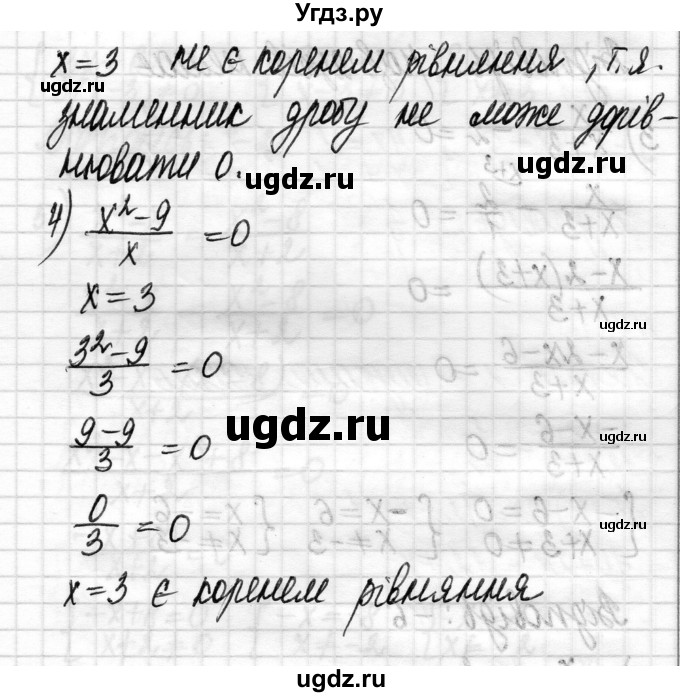 Угдз.ру
x = 3 не є коренем рівняння, т.я.
знаменник дробу не може дорів-
нювати 0.
4) (x² - 9)/x = 0
x = 3
(3² - 9)/3 = 0
(9 - 9)/3 = 0
0/3 = 0
x = 3 є коренем рівняння
ugdz.ru
ugdz.ru
ugdz.ru
ugdz.ru
ugdz.ru
ugdz.ru
ugdz.ru
ugdz.ru
ugdz.ru
ugdz.ru